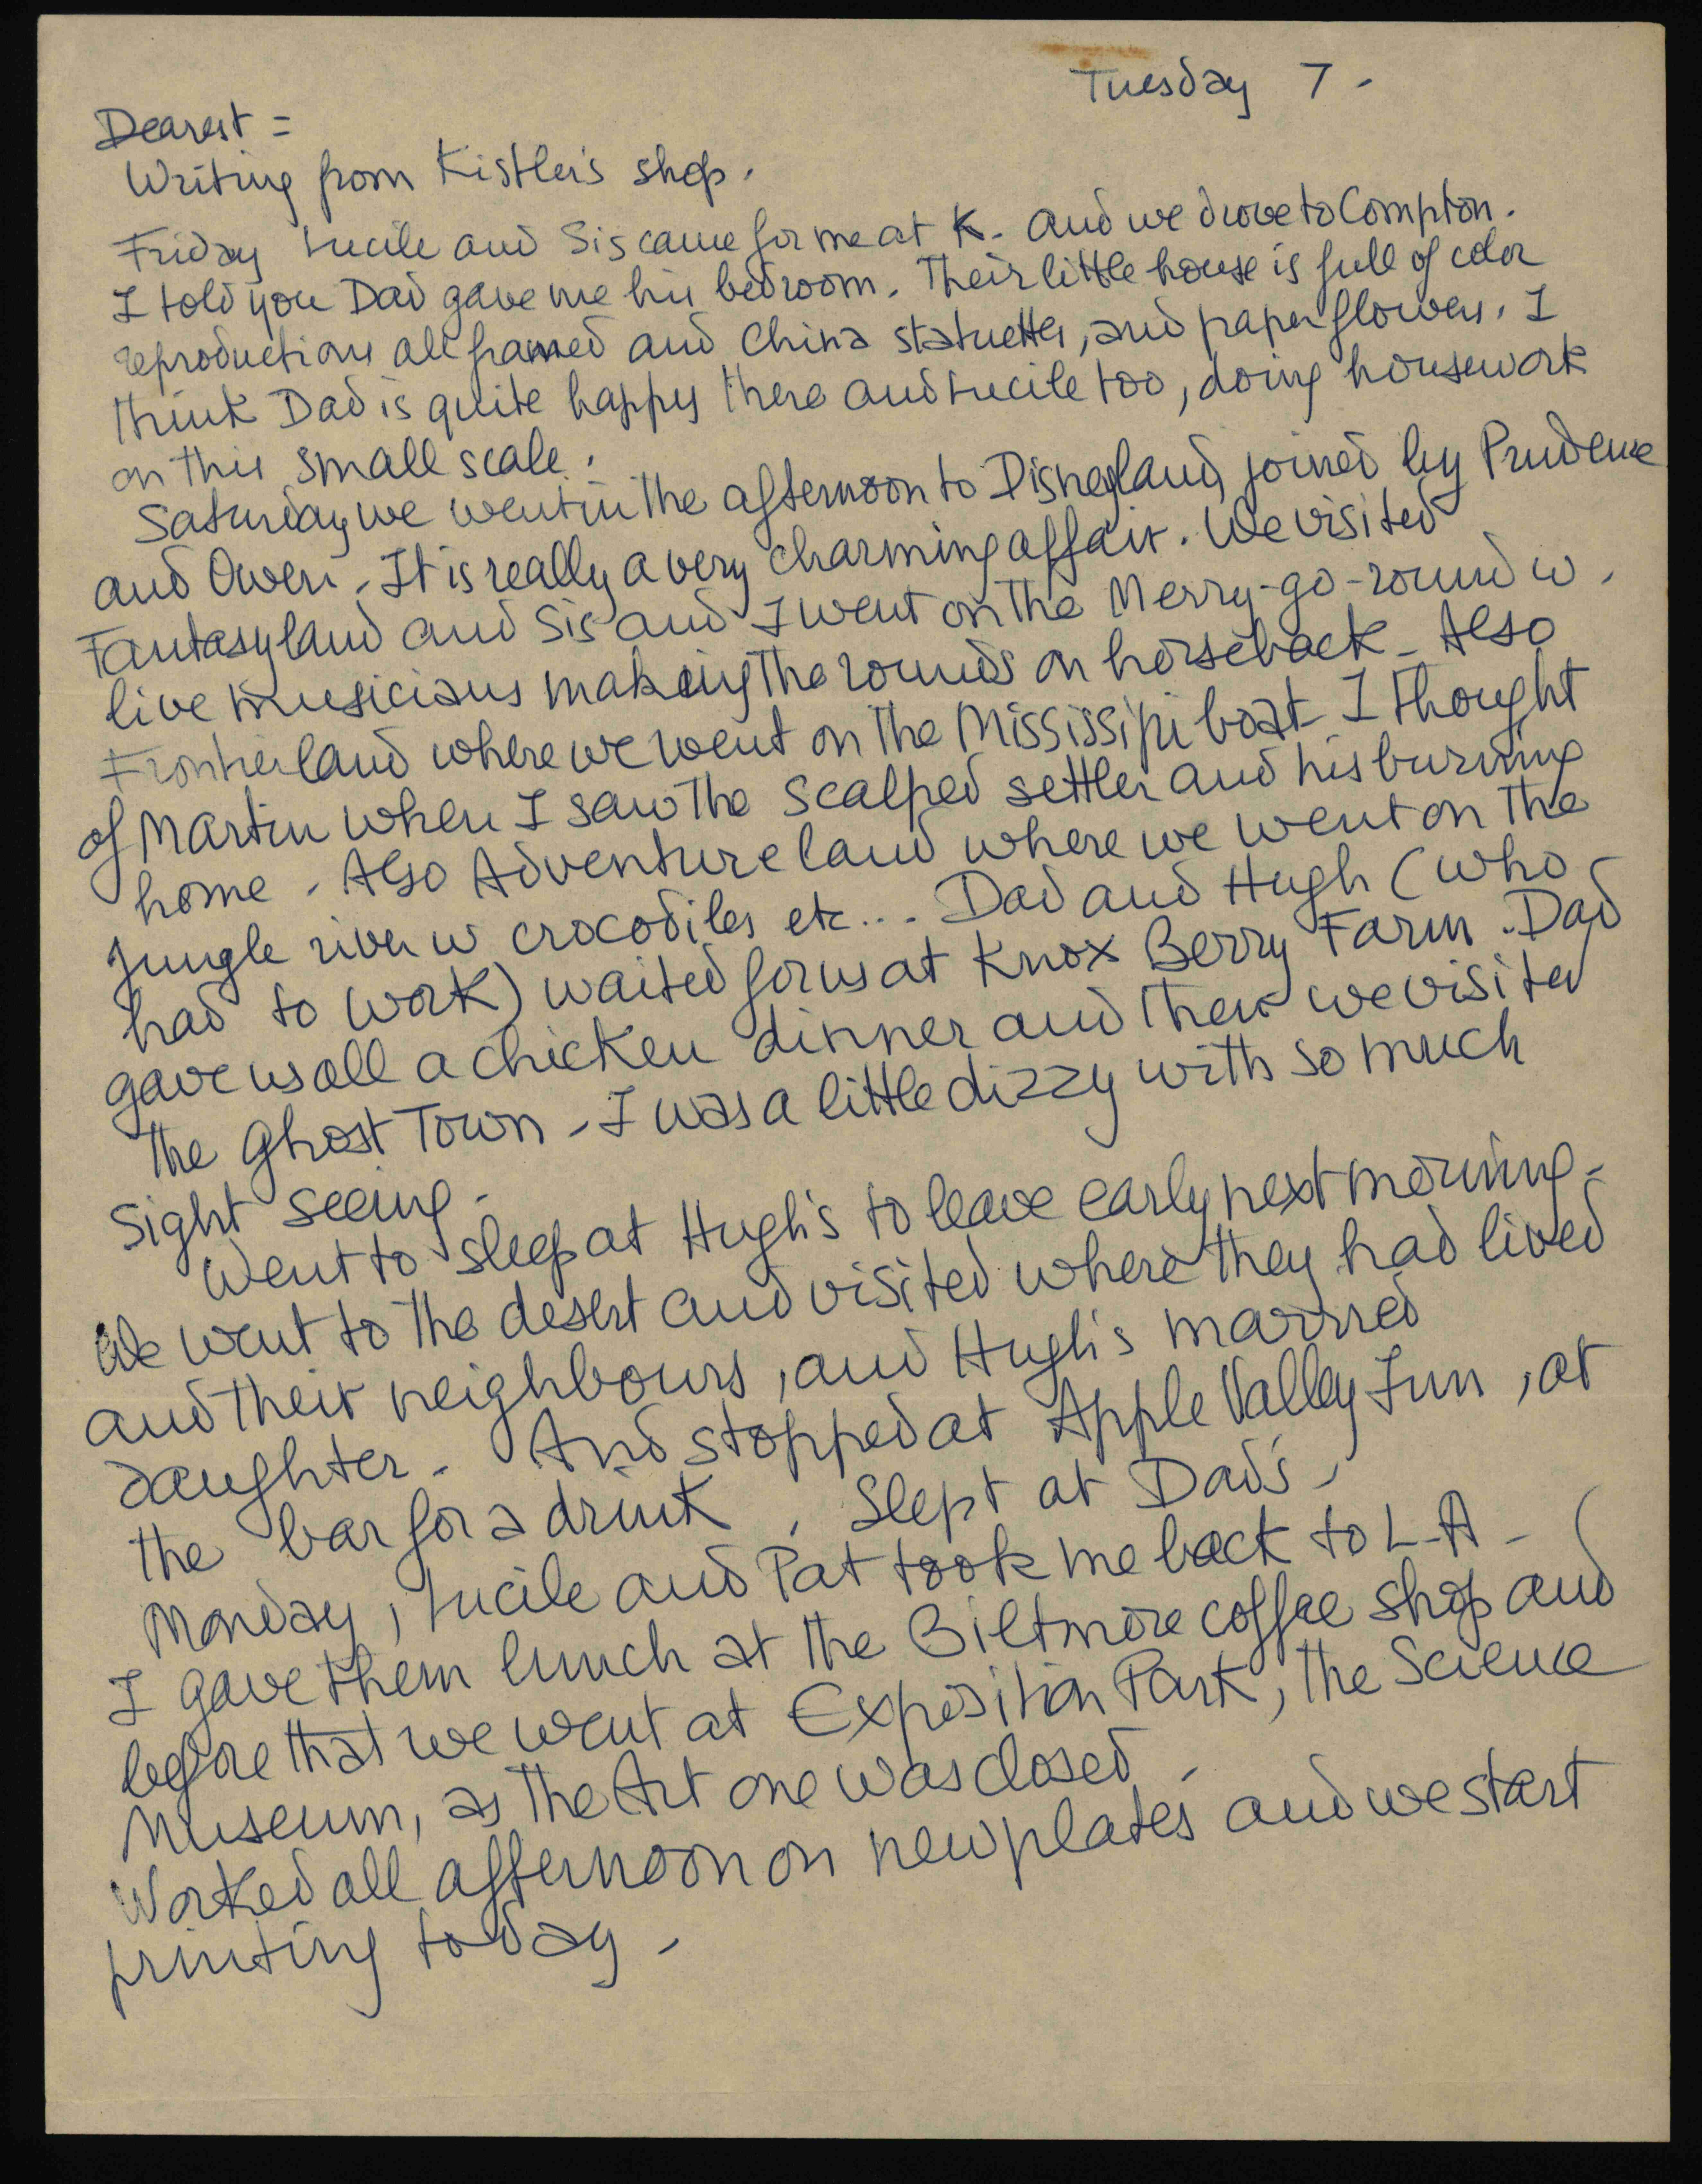 Tuesday 7 -
Dearest =
Writing from Kistler's shop.
Friday Lucile and Sis came for me at K. and we drove to Compton.
I told you Dad gave me his bedroom. Their little house is full of color
reproductions all framed and China statuettes, and paper flowers. I
think Dad is quite happy there and Lucile too, doing housework
on this small scale.
Saturday we went in the afternoon to Disneyland, joined by Prudence
and Owen. It is really a very charming affair. We visited
Fantasyland and Sis and I went on the Merry-go-round w.
live musicians making the rounds on horseback - Also
Frontierland where we went on the Mississipi boat - I thought
of Martin when I saw the scalped settler and his burning
home - Also Adventureland where we went on the
Jungle river w crocodiles etc... Dad and Hugh (who
had to work) waited for us at Knox Berry Farm. Dad
gave us all a chicken dinner and then we visited
the Ghost Town - I was a little dizzy with so much
sight seeing -
Went to sleep at Hugh's to leave early next morning -
We went to the desert and visited where they had lived
and their neighbours, and Hugh's married
daughter. And stopped at Apple Valley Inn, at
the bar for a drink. Slept at Dad's -
Monday, Lucile and Pat took me back to L-A - (
I gave them lunch at the Biltmore coffee shop and
before that we went at Exposition Park, the Science
Museum, as the Art one was closed -
Worked all afternoon on new plates and we start
printing today -